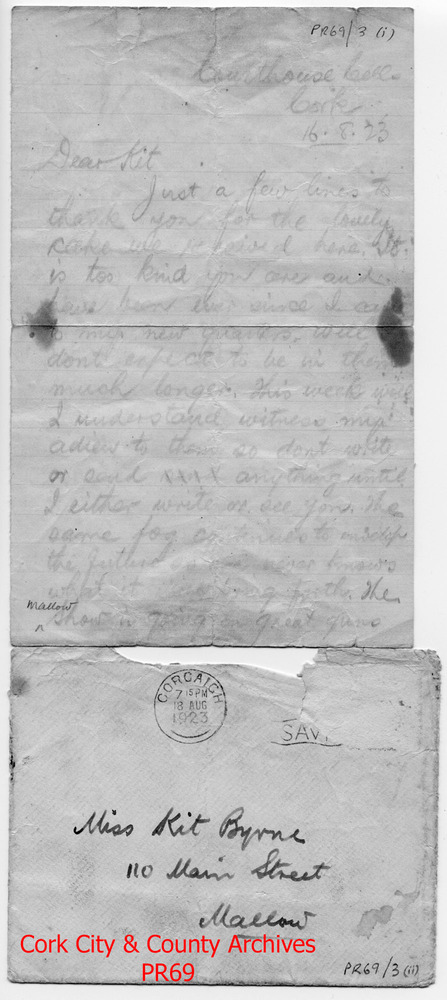 PR69/3 (i)
Courthouse
Cork
16.8.23
Dear Kit
Just a few lines to
thank you for the lovely
cake we received here. It
is too kind you are and
have been ever since I
to my new quarters. Well
dont expect to be in them
much longer. This week will
I understand witness my
adieu to them so dont write
or send xxxx anything until
I either write or see you. The
same fog continues to
the future never knows
what it bring forth. The
Mallow
^ show is going on great guns
CORCAIGH
7 15 PM
18 AUG
1923
SAV
Miss Kit Byrne
110 Main Street
Mallow
Cork City & County Archives
PR69
PR69/3 (ii)